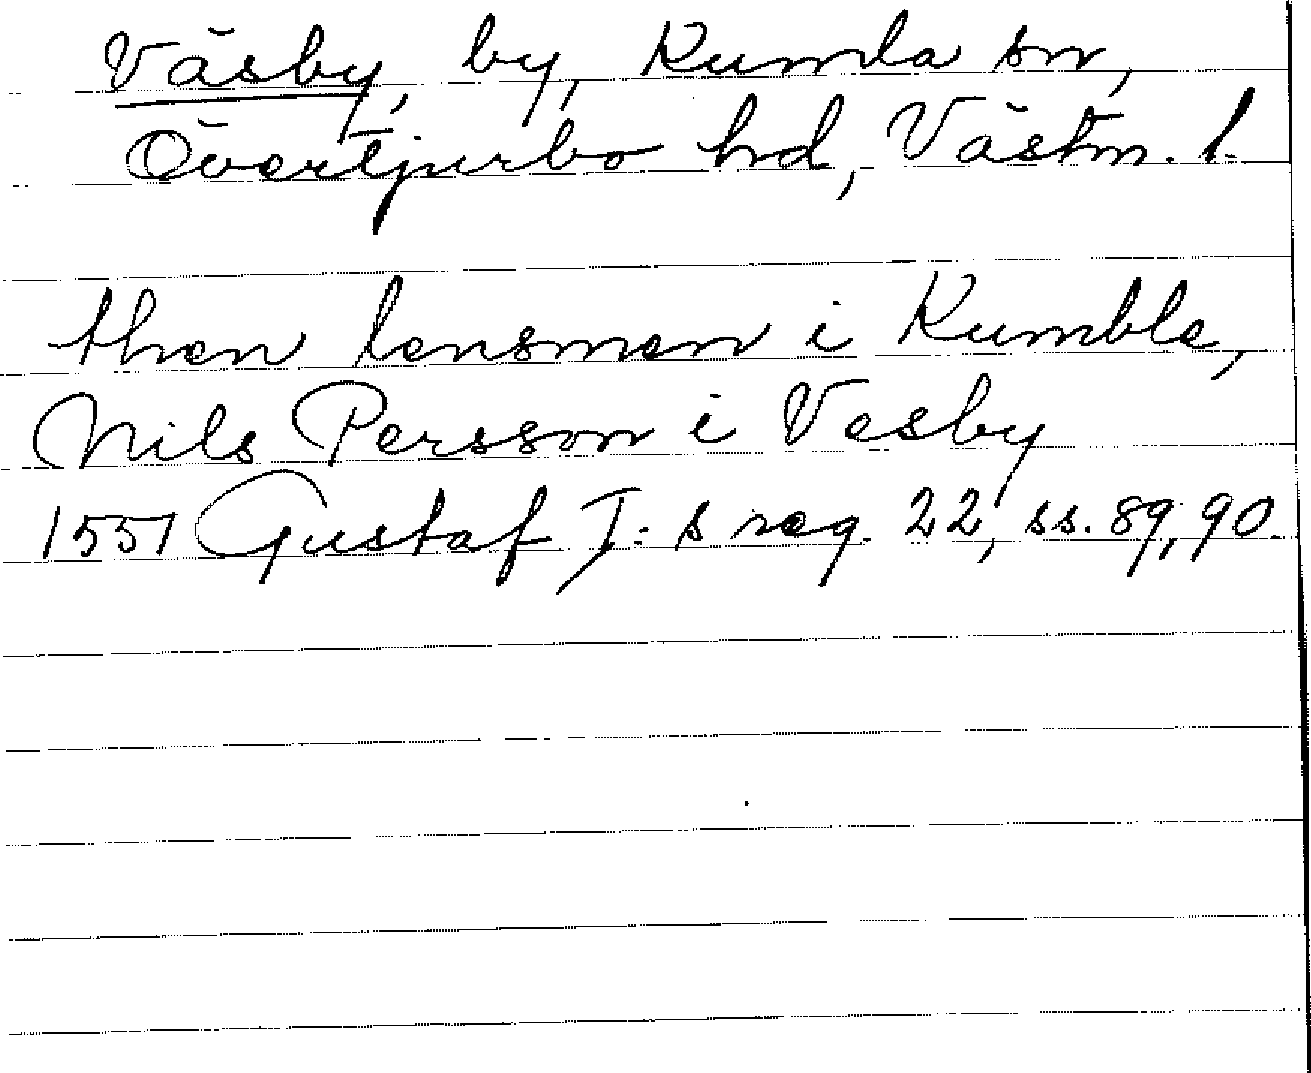 Väsby, by, Kumla sn,
Övertjurbo hd, Västm. l.
then lensmen i Kumble,
Nils Persson i Vesby
1551 Gustaf I:s reg. 22, ss. 89, 90.